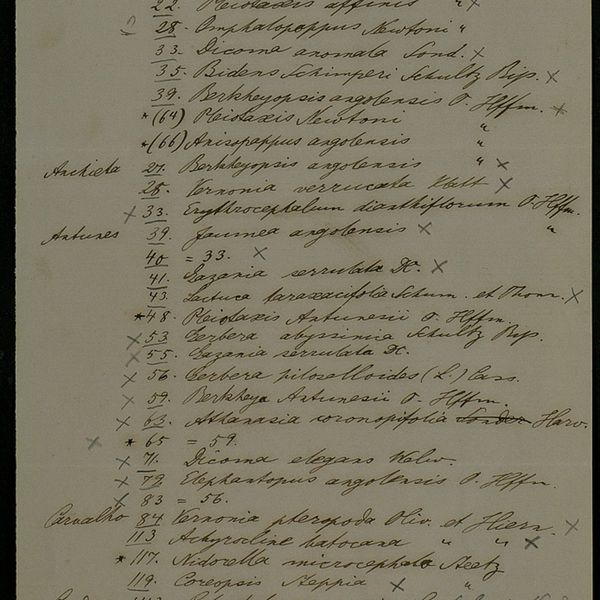 22. Pleiotaxis affinis " x
28. Omphalopappus Newtoni "
33. Dicoma anomala Sond. x
35. Bidens Schimperi Schultz Bip. x
39. Berkheyopsis angolensis O. Hffm. x
*(64) Pleiotaxis Newtoni "
*(66) Anisopappus angolensis "
Anchieta 27. Berkheyopsis angolensis " x
28. Vernonia verrucata Klatt x
x 33. Erythrocephalum dianthiflorum O. Hffm.
Antunes 39. Jaumea angolensis x "
40 = 33. x
41. Gazania serrulata DC. x
43. Lactuca taraxacifolia Schum. et Thonn. x
*48. Pleiotaxis Antunesii O. Hffm.
x 53. Gerbera abyssinia Schultz Bip.
x 55. Gazania serrulata DC.
x 56. Gerbera piloselloides (L.) Cass.
x 59. Berkheya Antunesii O. Hffm.
x 63. Athanasia coronopifolia Sonder Harv.
x * 65 = 59.
x 71. Dicoma elegans Welw.
x 79. Elephantopus angolensis O. Hffm.
x 83 = 56.
Carvalho 84. Vernonia pteropoda Oliv. et Hiern. x
113 Achyrocline batocana " " x
* 117. Nidorella microcephala Steetz
119. Coreopsis Steppia x "